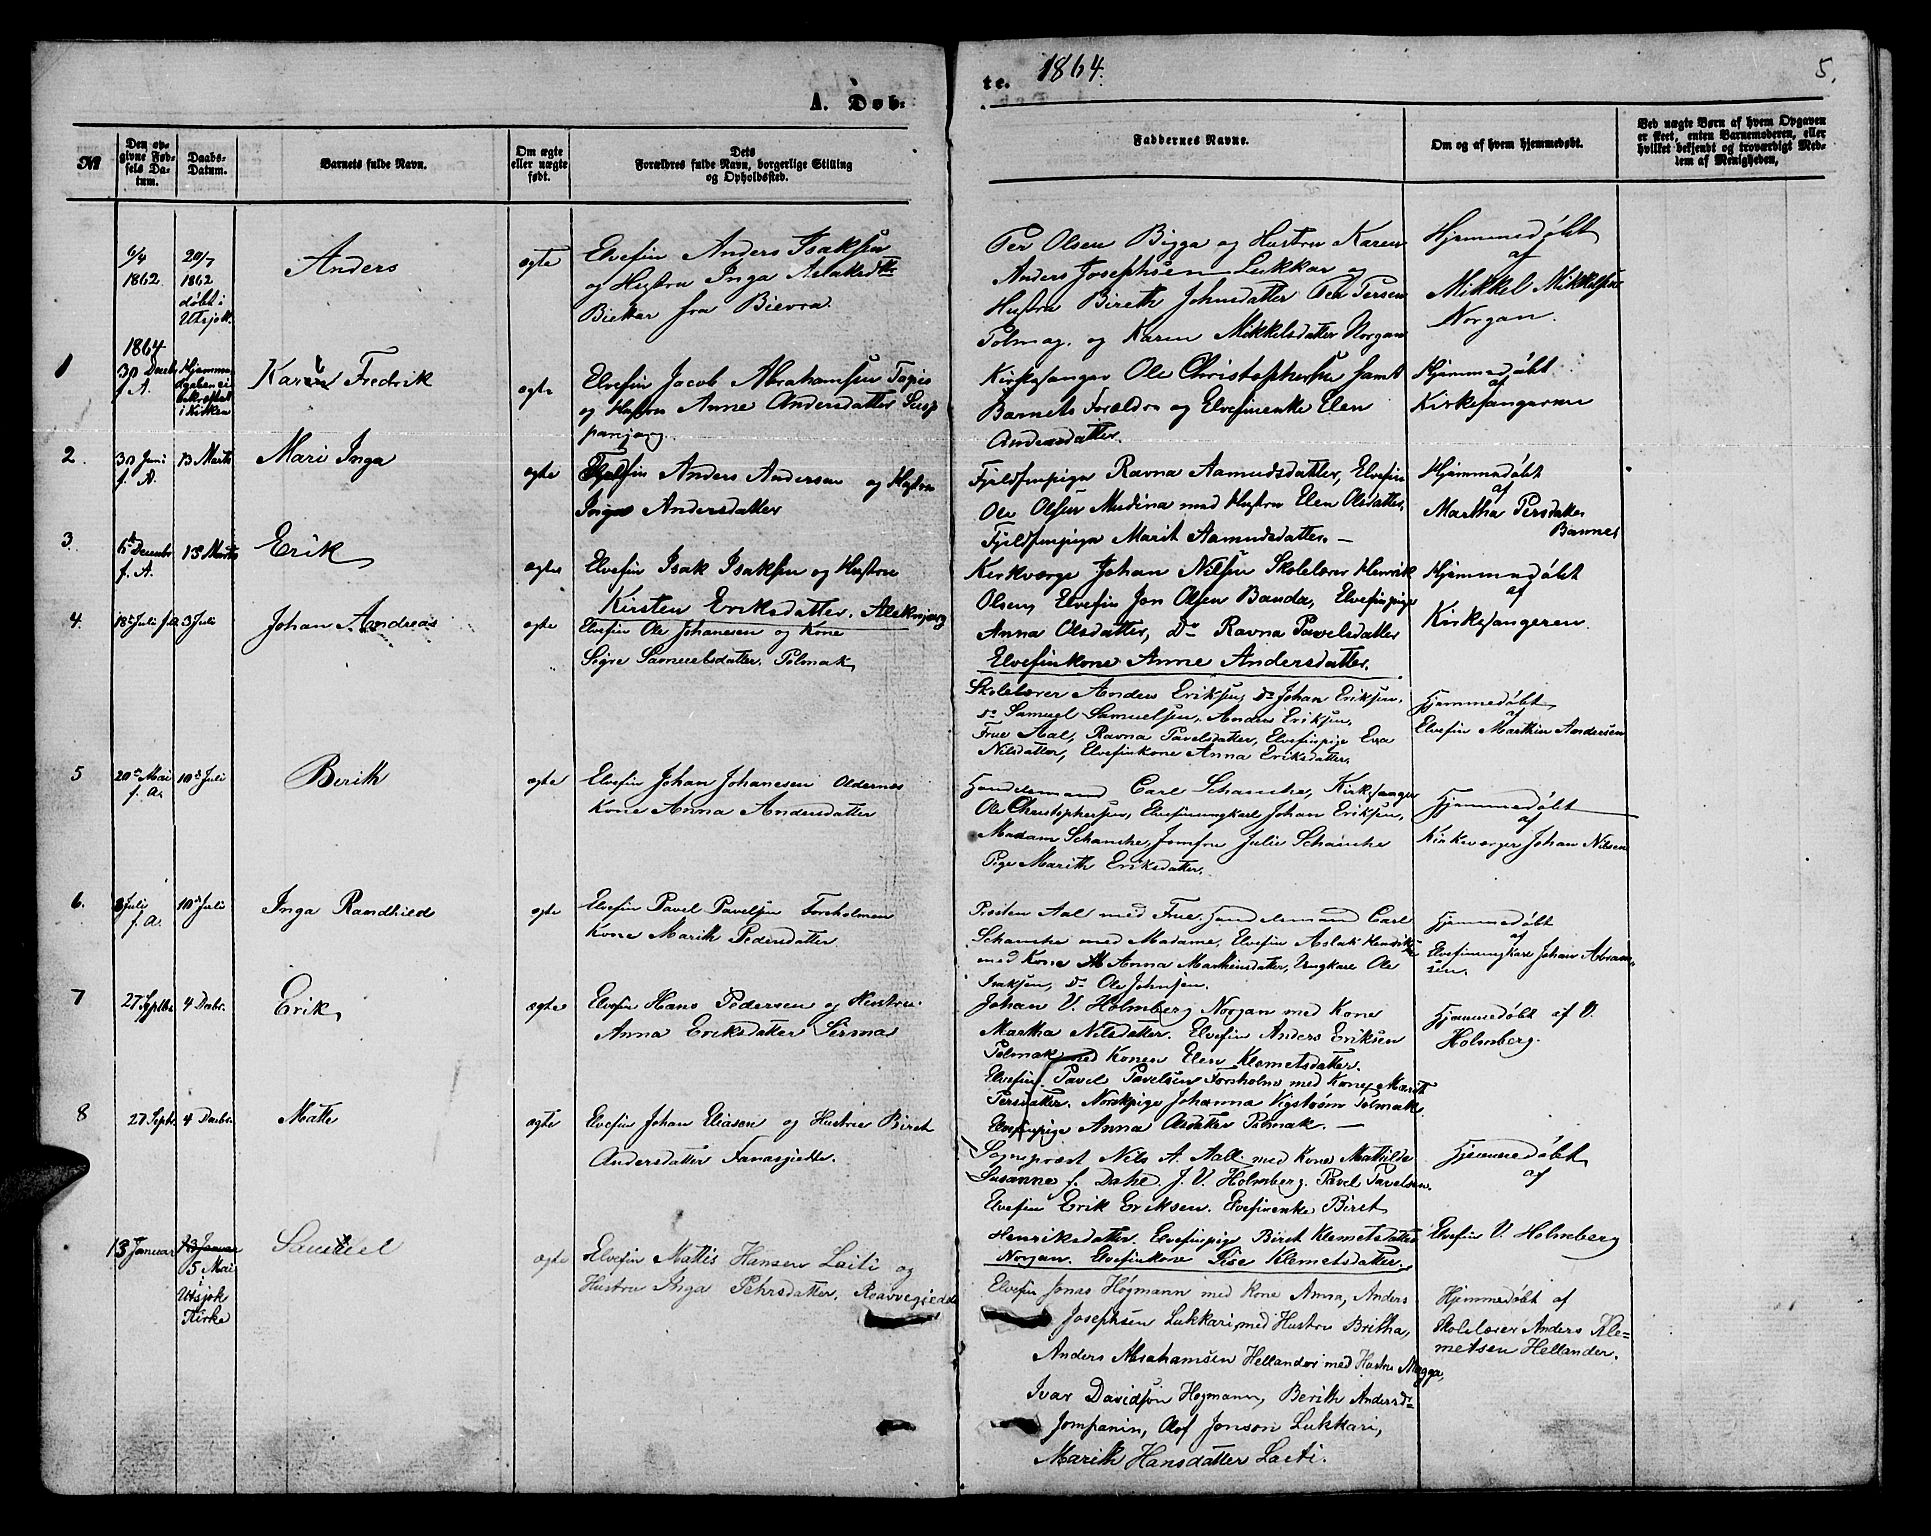 A. Døb-
te. 1864.
5.
№
Den op-
givne Fød-
sels Da-
tum.
Daabs-
Datum.
Barnets fulde Navn.
Om ægte
eller uægte
født.
Dets
Forældres fulde Navn, borgerlige Stilling
og Opholdssted.
Faddernes Navne.
Om og af hvem hjemmedøbt.
Ved uægte Børn af hvem Opgaven
er skeet, enten Barnemoderen, eller
hvilket bekjendt og troværdigt Med-
lem af Menigheden.
6/4
1862
20/7
1862
døbt i
Utsjok.
Anders
ægte
Elvefin Anders Isaksen
og Hustru Inga Aslaksdtt
Biekar fra Bievra.
Per Olsen Bigga og Hustru Karen
Anders Josephsen Lukkar og
Hustru Bireth Johnsdatter Per Persen
Polmag. og Karen Mikkelsdatter Norgan
Hjemmedøbt
af
Mikkel Mikkelsen
Norgan.
1
1864
30 Decbr
f. A.
i Kirken
Fredrik
ægte
Elvefin Jacob Abrahamsen
og Hustru Anne Andersdatter
Kirkesanger Ole Christophersen samt
Barnets Forældre og Elvefinenke Elen
Andersdatter.
Hjemmedøbt
af
Kirkesangeren
2.
30 Juni
f. A.
13 Marts
Mari Inga
ægte
Anders Andersen og Hustru
Inga Andersdatter
Fjeldfinpige Ravna Aamundsdatter, Elvefin
Ole Olsen Mudina med Hustru Elen Olsdatter,
Fjeldfinpige Marit Aamundsdatter. —
Hjemmedøbt
af
Martha Persdatter
Bannes
3.
Decembr
f. A.
13 Marts
Erik
ægte
Elvefin Isak Isaksen og Hustru
Kirsten Eriksdatter. Aleknjarg
Kirkværge Johan Nilsen Skolelærer Henrik
Olsen, Elvefin Jon Olsen Banda, Elvefinpige
Anna Olsdatter, Do Ravna Pavelsdatter
Elvefinkone Anne Andersdatter.
Hjemmedøbt
af
Kirkesangeren.
4.
18 Juli f. A.
3 Juli
Johan Andreas
ægte
Elvefin Ole Johanesen og Kone
Sigre Samuelsdatter. Polmak
Skolelærer Anders Eriksen, Do Johan Eriksen,
Do Samuel Samuelsen, Anders Eriksen,
Frue Aal, Ravna Pavelsdatter, Elvefinpige Eva
Nilsdatter, Elvefinkone Anna Eriksdatter.
Hjemmedøbt
af
Elvefin Mathin Andersen
5
20de Mai
f. a.
10de Juli
Berith
ægte
Elvefin Johan Johanesen Oldernes
Kone Anna Andersdatter
Handelsmand Carl Schanche, Kirkesanger
Ole Christophersen, Elvefinungkarl Johan Eriksen,
Madam Schanche, Jomfru Julie Schanche
Pige Marith Eriksdatter.
Hjemmedøbt
af
Kirkeværger Johan Nilsen
6.
Juli
f. a.
10de Juli
Inga Randhild
ægte
Elvefin Pavel Pavelsen Forsholmen
Kone Marith Pedersdatter.
Præsten Aal med Frue, Handelsmand Carl
Schanche med Madame, Elvefin Aslak Henrik
med Kone Anna Mathinsdatter, Ungkarl Ole
Isaksen, Do Ole Johnsen.
Hjemmedøbt
af
Elvefinungkarl Johan Abram-
sen.
7
27 Septbr.
4 Decbr.
Erik
ægte
Elvefin Hans Pedersen og Hustru
Anna Eriksdatter Sirma
Johan V. Holmberg Norgan med Kone
Martha Nilsdatter. Elvefin Anders Eriksen
Polmak med Konen Elen Klemetsdatter.
Elvefin. Pavel Pavelsen Forsholm med Kone Marith
Persdatter. Norskpige Johanna Vigstrøm Polmak.
Elvefinpige Anna Olsdatter Polmak. —
Hjemmedøbt af V.
Holmberg.
8
27 Septr.
4 Decbr.
Matte
ægte
Elvefin Johan Eliasen og Hustru Biret
Andersdatter Fanasgiedde.
Sognepræst Nils A. Aall med Kone Mathilde
Susanne f. Dahl. J. V. Holmberg. Pavel Pavelsen.
Elvefin Erik Eriksen. Elvefinenke Biret
Henriksdatter. Elvefinpige Biret Klemetsdatter
Norgan. Elvefinkone Lise Klemetsdatter.
Hjemmedøbt
af
Elvefin V. Holmberg
13 Januar
13 Januar
5 Mai
i
Utsjok
Kirke
Samuel
ægte
Elvefin Mattis Hansen Laiti og
Hustru Inga Pehrsdatter, Roavvegiedde
Elvefin Jonas Högmann med Kone Anna, Anders
Josephsen Lukkari, med Hustru Britha,
Anders Abrahamsen Hellander med Hustru Magga,
Ivar Davidson Högmann, Berith Andersd-
Jompanin, Olof Jonson Lukkari,
Marith Hansdatter Laiti.
Hjemmedøbt af
Skolelærer Anders Kle-
metsen Hellander.